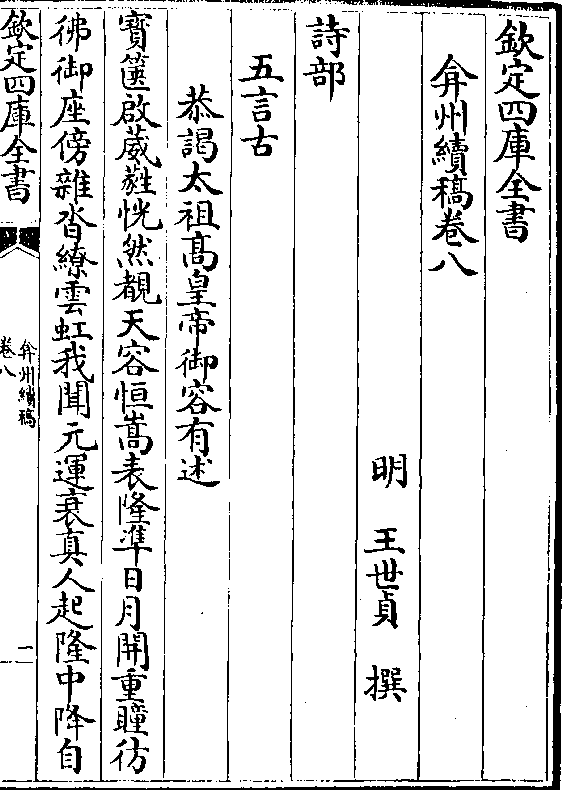 欽定四庫全書
弇州續稿卷八
明 王世貞 撰
詩部
五言古
恭謁太祖髙皇帝御容有述
寳篋啟葳蕤恍然覩天容恒嵩表隆準日月開重瞳彷
彿御座傍雜沓繚雲虹我聞元運衰真人起隆中降自
欽定四庫全書
弇州續稿
卷八
一